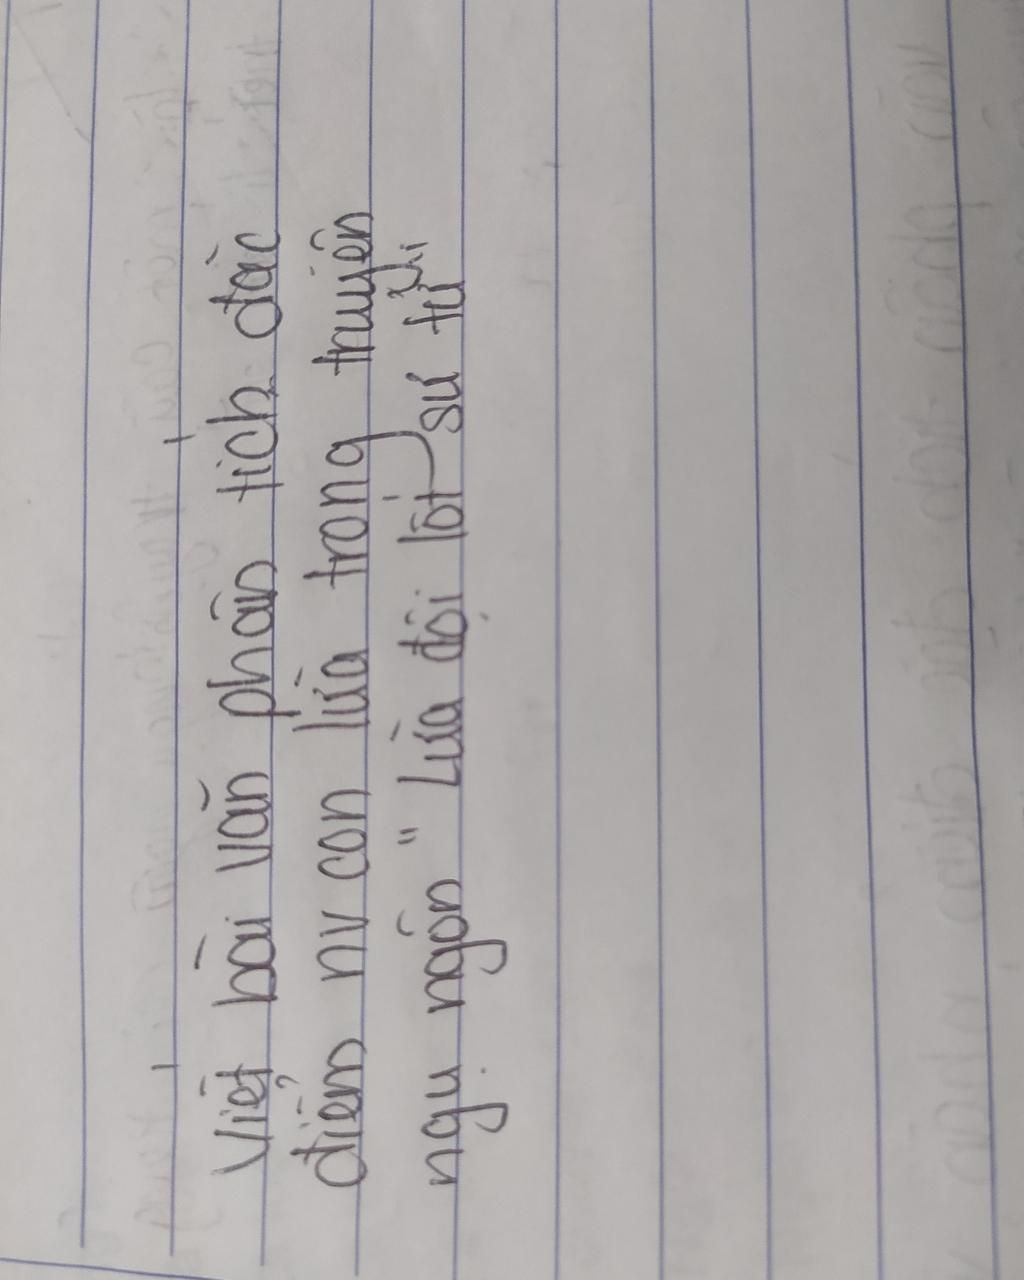 Viết bài văn phân tích đặc
điểm nv con lừa trong truyện
ngụ ngôn " Lừa đội lốt sư tử